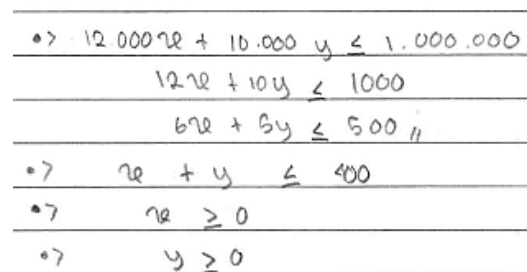 •> 12.000x + 10.000 y ≤ 1.000.000
12x + 10y ≤ 1000
6x + 5y ≤ 500 //
•> x + y ≤ 400
•> x ≥ 0
•> y ≥ 0